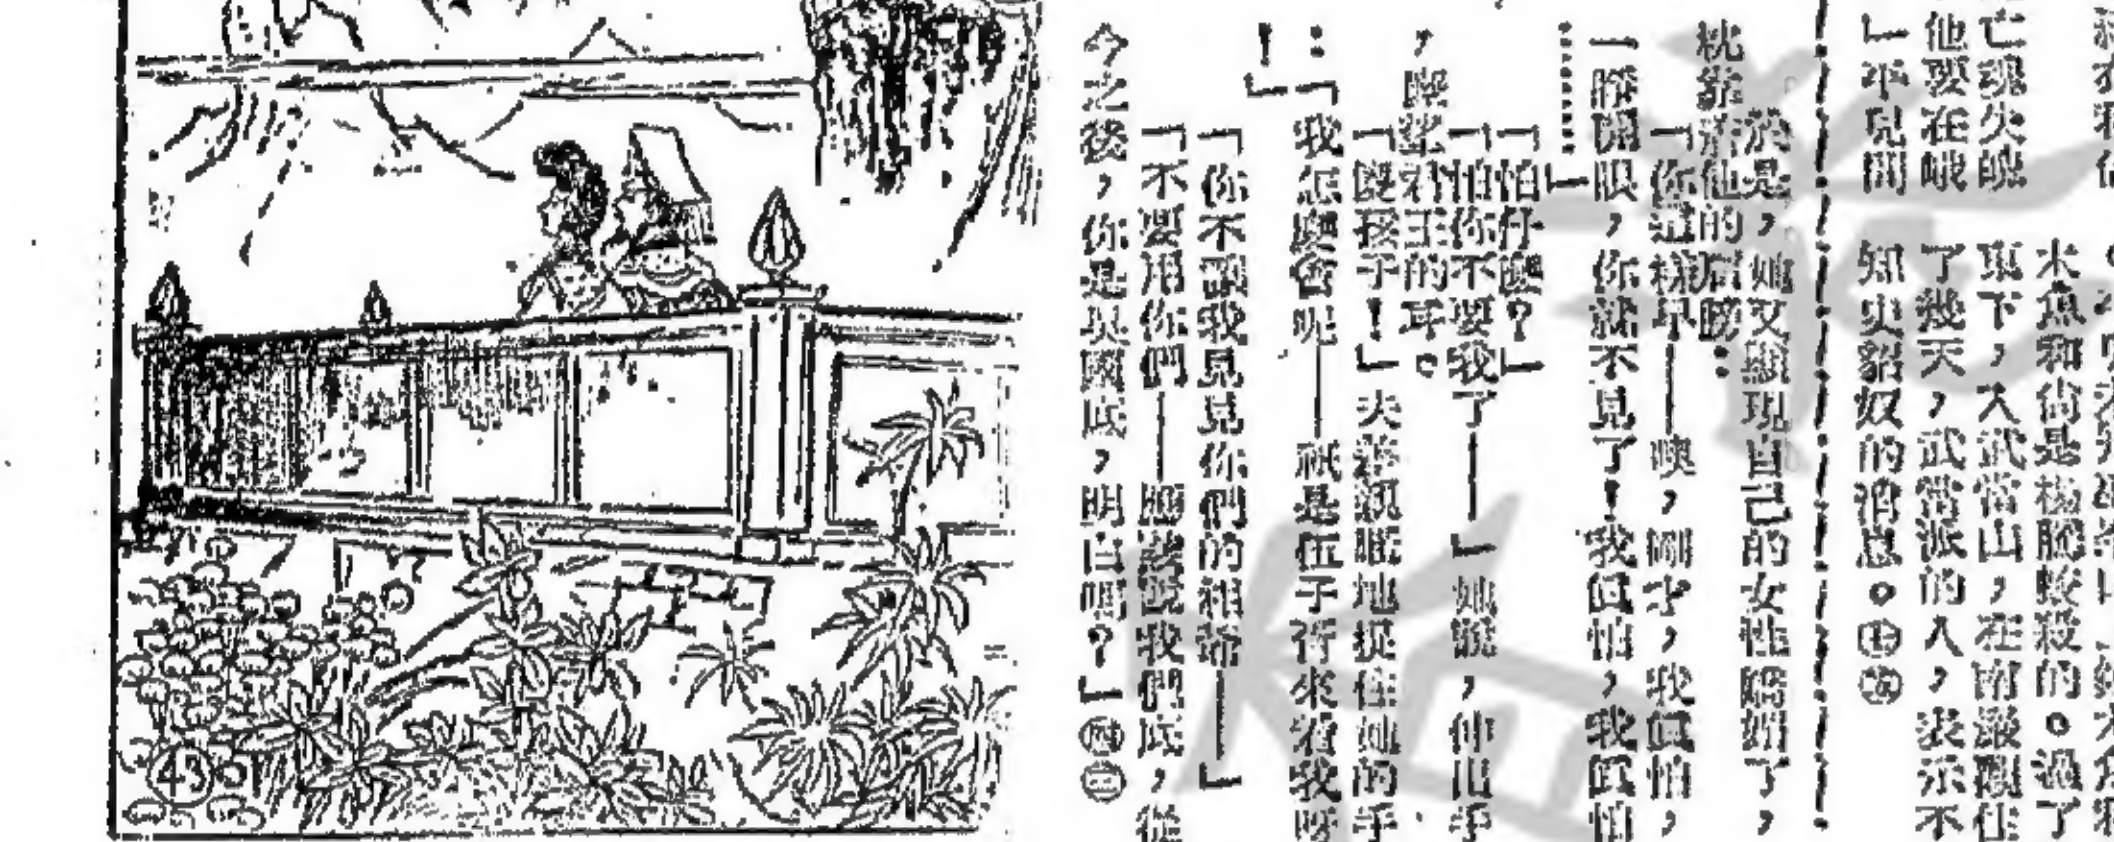 亡魂失魄
他要在峨
」平兒問
木魚和尙是楊騰蛟殺的。過了
東下,入武當山,在南巖觀住
了幾天,武當派的人,表示不
知史貂奴的消息。
於是,她又顯現自己的女性嬌媚了,
枕靠着他的肩膀:
「你這樣早——噢,剛才,我眞怕,
一睜開眼,你就不見了!我眞怕,我眞怕
………」
「怕什麽?」
「怕你不要我了——」她說,伸出手
,探望君王的耳。
「傻孩子!」夫差親暱地捉住她的手
:「我怎麽會呢——祇是伍子胥來看我呀
!」
「你不讓我見見你們的相爺——」
「不要用你們——應該說我們底,從
今之後,你是吳國底,明白嗎?」
43